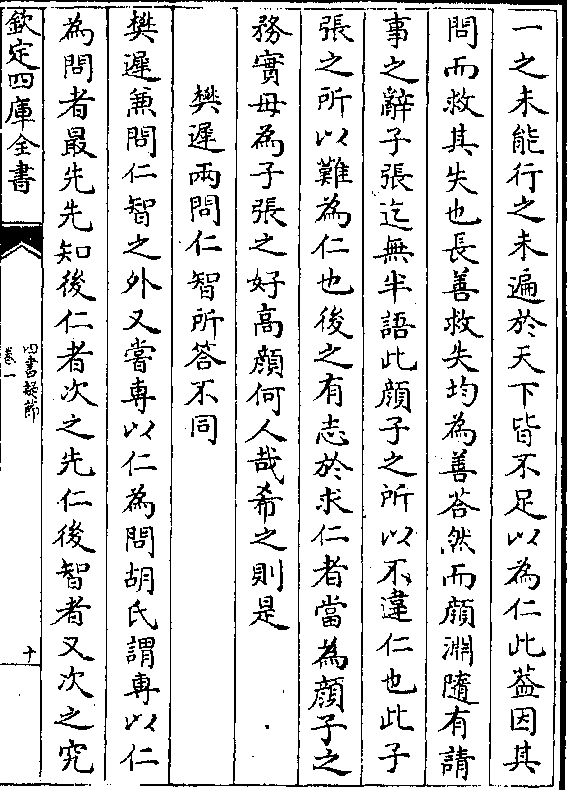 一之未能行之未遍於天下皆不足以為仁此葢因其
問而救其失也長善救失均為善荅然而顔淵隨有請
事之辭子張迄無半語此顔子之所以不違仁也此子
張之所以難為仁也後之有志於求仁者當為顔子之
務實毋為子張之好高顔何人哉希之則是
樊遲兩問仁智所答不同
樊遲兼問仁智之外又嘗専以仁為問胡氏謂専以仁
為問者最先先知後仁者次之先仁後智者又次之究
欽定四庫全書
四書疑節
卷一
十